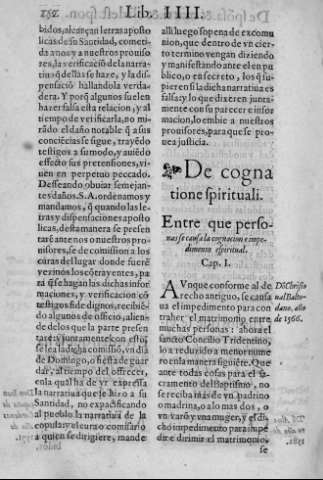 Lib. IIII.
bidos, alcançan letras aposto
licas de su Santidad, cometi
da anos y a nuestros proviso
res, la verificaciõ de la narra-
tiua q̃ dellas se hare, y la dis-
pensaciõ hallandola verda-
dera. Y porq̃ algunos suelen
hazer falsa esta relacion, y al
tiempo de verificarla, no mi-
rãdo el daño notable q̃ a sus
cõciẽcias se sigue, trayẽdo
testigos a su modo, y auiẽdo
effecto sus pretensiones, vi-
uen en perpetuo peccado.
Desseando obuiar semejan-
tes daños. S.A. ordenamos y
mandamos, q̃ quando las le-
tras y dispensaciones aposto
licas, destamanera se presen
tarẽ ante nos o nuestros pro
uisores, se de comission a los
curas del lugar donde fuerẽ
vezinos los cõtrayentes, pa
ra q̃ se hagan las dichas infor
maciones, y verificacion cõ
testigos fidedignos, recibiẽ
do algunos de officio, alien-
de de los que la parte presen
tare: y juntamente con esto,
se lea la dicha comissiõ, vn dia
de Domingo, o fiesta de guar
dar, al tiempo del offrecer,
en la qual ha de yr expressa
la narratiua que se hizo a su
Santidad, no expacificando
al pueblo la narratiua de la
copula: y el cura o comissario
a quien se dirigiere, mande
alli luego so pena de excomu
nion, que dentro de vn cier
to termino vengan diziendo
y manifestando ante el en pu
blico, o en secreto, los q̃ su-
pieren si la dicha narratiua es
falsa: y lo que dixeren junta-
mente con su parecer e infor
macion, lo embie a nuestros
prouisores, para que se pro-
uea justicia.
De cogna
tione spirituali.
Entre que perso-
nas se causa la cognacion e impe-
dimento espiritual.
Cap. I.
AVnque conforme al de-
recho antiguo, se causa
ua el impedimento para con
traher el matrimonio entre
muchas personas: ahora el
sancto Concilio Tridentino,
lo a reduzido a menor nume
ro en la manera siguiẽte. Que
ante todas cosas para el sa-
cramento del Baptismo, no
se reciba más de vn padrino
o madrina, o a lo mas dos, o
vn varõ y vna muger, y el di-
cho impedimento para impe
dir e dirimir el matrimonio,
se
Dõ Christo
ual Balto-
dano, año
de 1566.